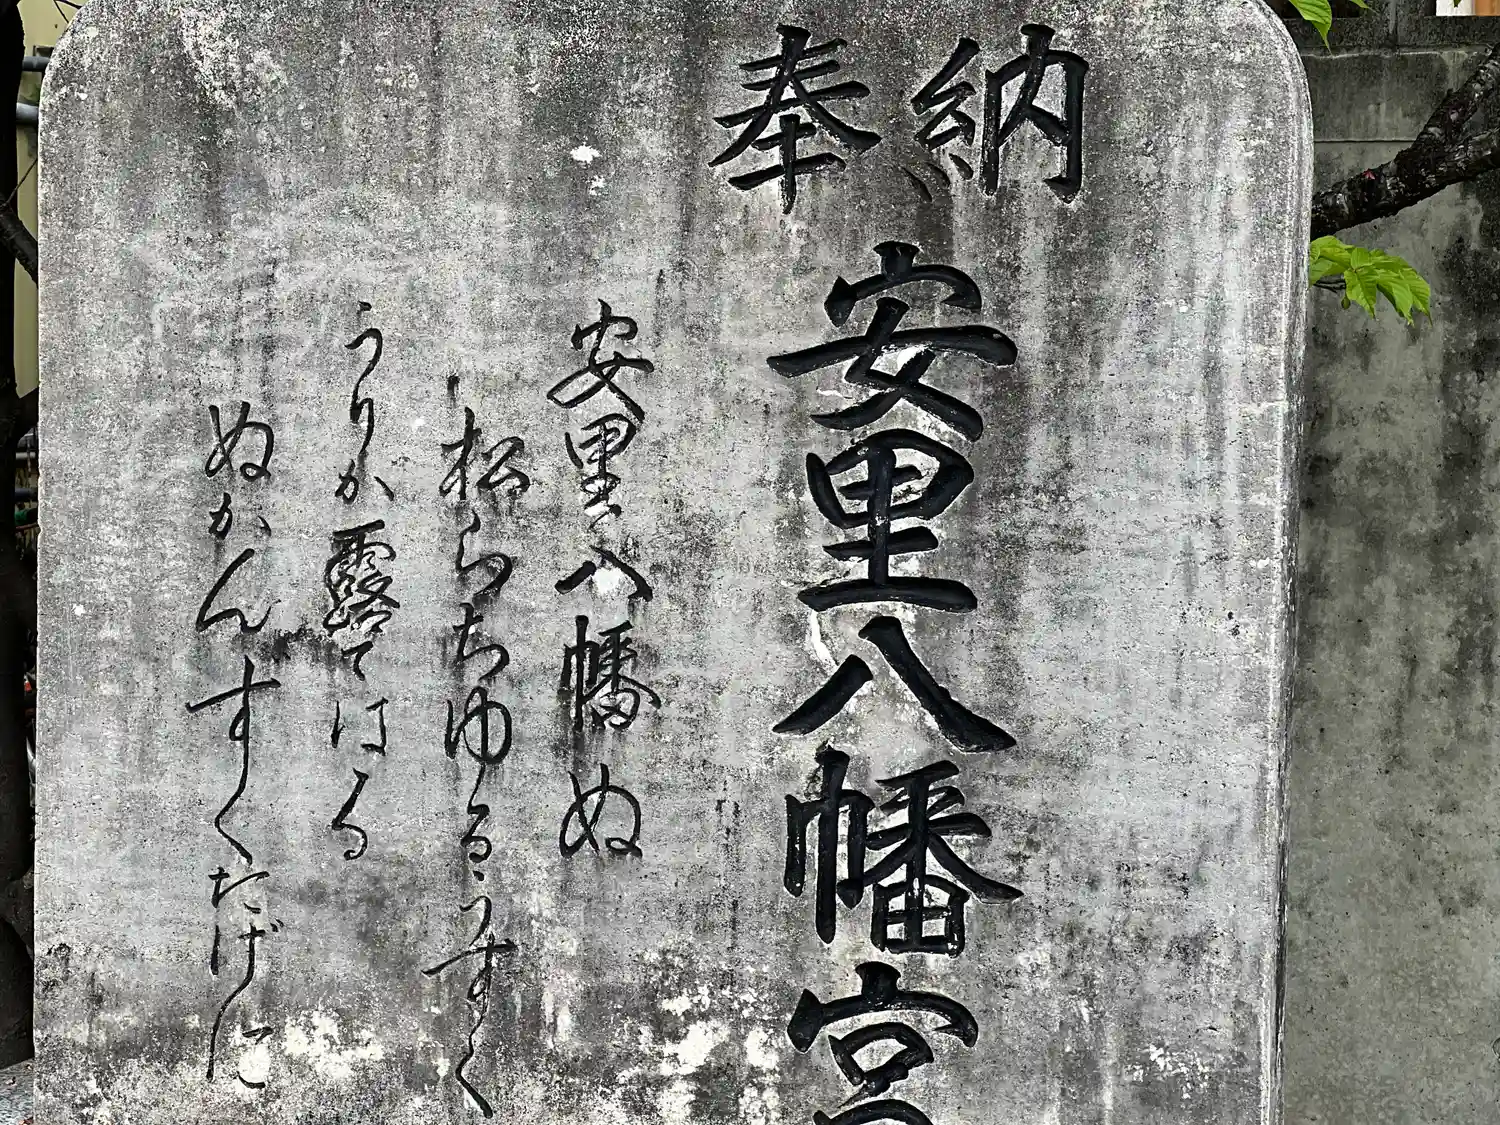 奉納
安里八幡宮
安里八幡ぬ
松らちゆるうすく
うりか露てはる
ぬかんすくたげに